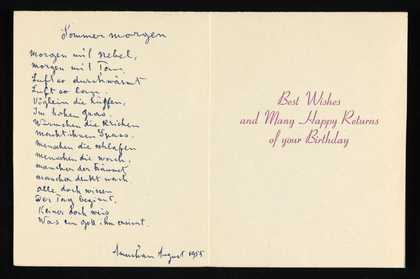 Sommermorgen
Morgen mit Nebel,
morgen mit Tau
Luft so durchwärmt
Luft so
Vöglein die hüpfen,
Im hohen Gras.
Würmchen die kriechen
macht ihnen Spass.
menschen die schlafen
menschen die wach,
mancher der träumt
mancher denkt nach.
alle doch wissen
Der Tag beginnt.
Keiner doch weis
Was ein Gott ihm
August 1955
Best Wishes
and Many Happy Returns
of your Birthday